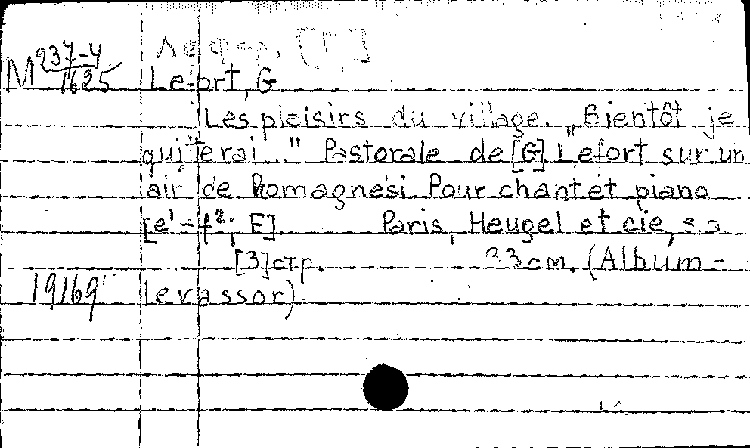 Лефор, [Г.]
М 237-4/1625
Lefort, G
Les pleisirs du village. „Bientôt je
quitterai..." Pastorale de [G] Lefort sur un
air de Romagnesi. Pour chant et piano
[e¹-f²; E]. Paris, Heugel et cie, s a
[3] стр. 33 cm. (Album-
19169 levassor)